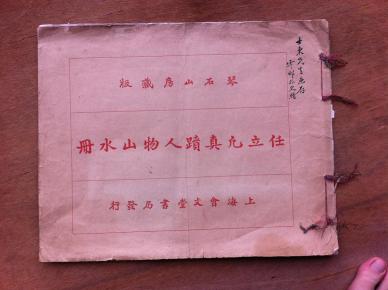 琴石山房藏版
任立凡真蹟人物山水冊
上海會文堂書局發行